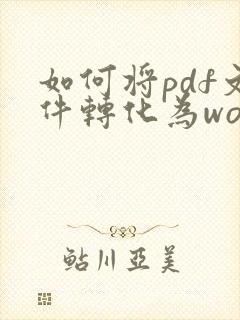 如何将pdf文
件轉化為wo
鮎川亞美